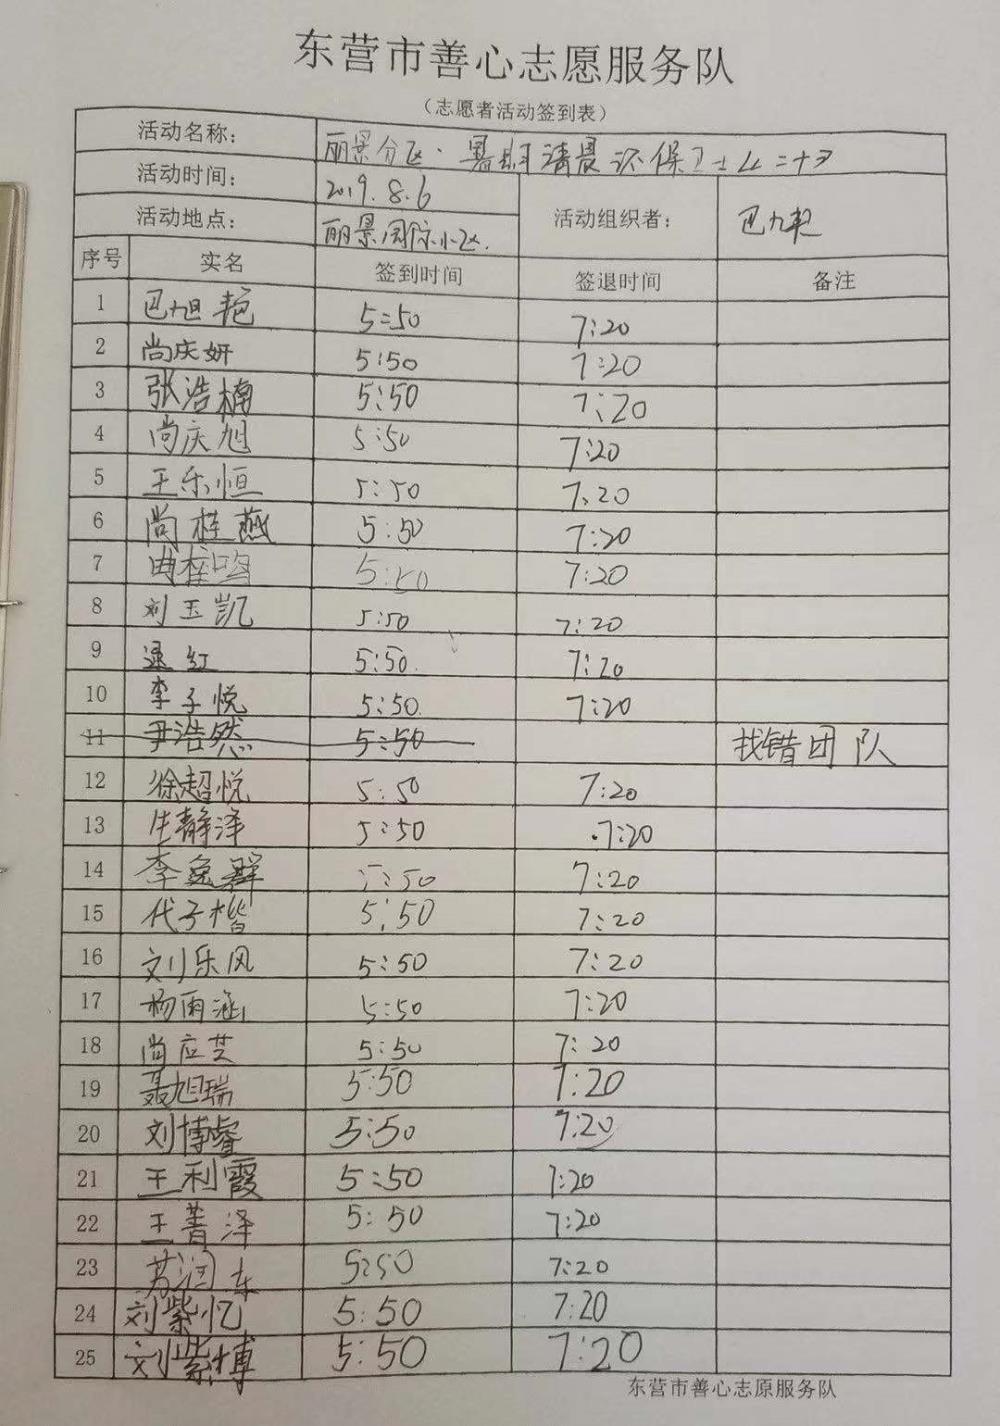 东营市善心志愿服务队
（志愿者活动签到表）
活动名称： 丽景分区·暑期清晨环保卫士二十
活动时间： 2019.8.6
活动地点： 丽景国际小区. 活动组织者： 巴九艳
序号 实名 签到时间 签退时间 备注
1 巴旭艳 5:50 7:20
2 尚庆妍 5:50 7:20
3 张浩楠 5:50 7:20
4 尚庆旭 5:50 7:20
5 王乐恒 5:50 7:20
6 尚桂燕 5:50 7:20
7 曲梓鸣 5:50 7:20
8 刘玉凯 5:50 7:20
9 逯红 5:50 7:20
10 李子悦 5:50 7:20
11 尹浩然 5:50 找错团队
12 徐超悦 5:50 7:20
13 生静泽 5:50 7:20
14 李逸群 5:50 7:20
15 代子楷 5:50 7:20
16 刘乐风 5:50 7:20
17 杨雨涵 5:50 7:20
18 尚应芝 5:50 7:20
19 聂旭瑞 5:50 7:20
20 刘博睿 5:50 7:20
21 王利霞 5:50 7:20
22 王菁泽 5:50 7:20
23 苏润东 5:50 7:20
24 刘紫忆 5:50 7:20
25 刘紫博 5:50 7:20
东营市善心志原服务队